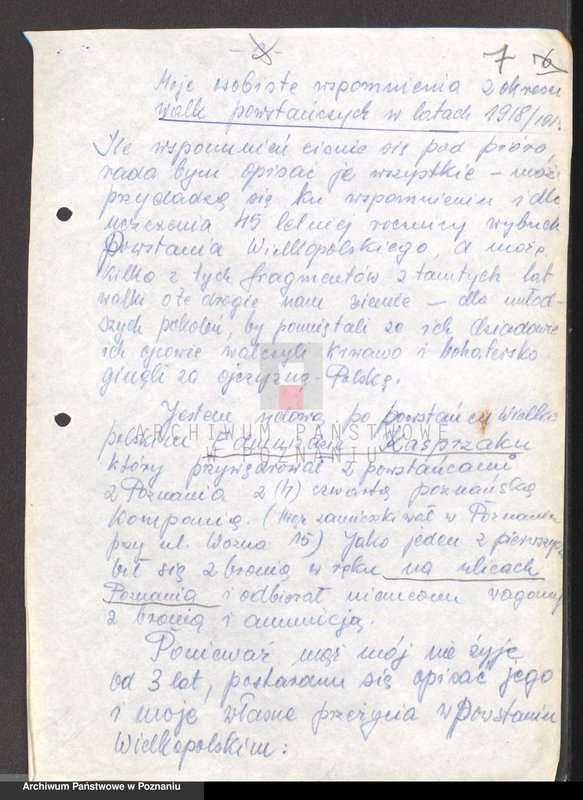 - 2 -
7
Moje osobiste wspomnienia z okresu
walk powstańczych w latach 1918/191
Ile wspomnień ciśnie się pod pióro
rada bym opisać je wszystkie – może
przydadzą się ku wspomnieniu i dla
uczczenia 45 letniej rocznicy wybuch
Powstania Wielkopolskiego, a może
kilka z tych fragmentów z tamtych lat
walki o te drogie nam ziemie – dla młod-
szych pokoleń, by pamiętali że ich dziadowie
ich ojcowie walczyli krwawo i bohatersko
ginęli za ojczyznę - Polskę.
Jestem wdową po powstańcu wielko
polskim Edmundzie Kasprzaku
który przywędrował z powstańcami
z Poznania z (4) czwartą poznańską
Kompanią. (Mąż zamieszkiwał w Poznaniu
przy ul. Woźna 15) Jako jeden z pierwszych
bił się z bronią w ręku na ulicach
Poznania i odbierał niemcom wagony
z bronią i amunicją.
Ponieważ mąż mój nie żyje
od 3 lat, postaram się opisać jego
i moje własne przeżycia w Powstaniu
Wielkopolskim:
ARCHIWUM PAŃSTWOWE
W POZNANIU
Archiwum Państwowe w Poznaniu